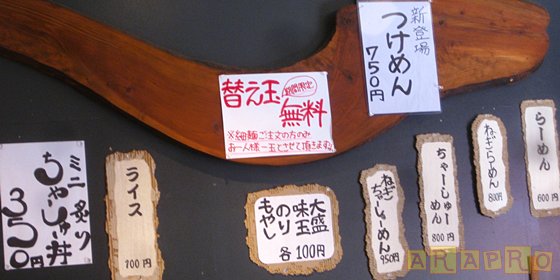 新登場
つけめん
750円
替え玉
期間限定
無料
※細麺ご注文の方のみ
お一人様一玉とさせて頂きます
らーめん
600円
ねぎらーめん
800円
ちゃーしゅー
めん
800円
ねぎ
ちゃーしゅーめん
950円
大盛
味玉
のり
もやし
各100円
ライス
100円
ミニ炙り
ちゃーしゅー丼
350円
ARAPRO